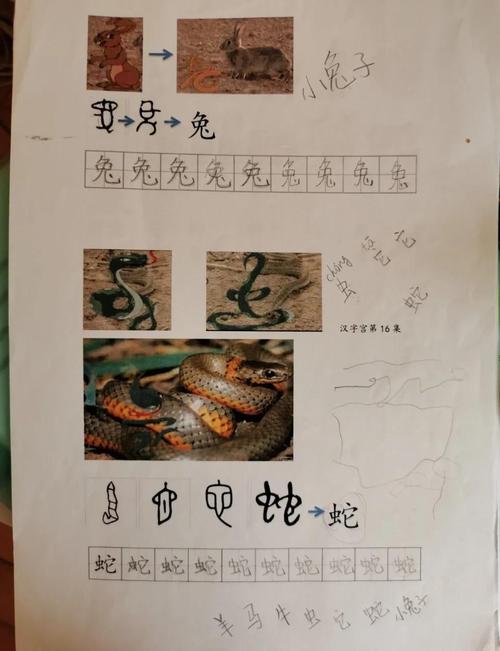 小兔子
兔
兔 兔 兔 兔 兔 兔 兔 兔 兔
它
chóng
虫
蛇
汉字宫第16集
蛇
蛇 蛇 蛇 蛇 蛇 蛇 蛇 蛇 蛇 蛇
羊 马 牛 虫 它 蛇 小兔子